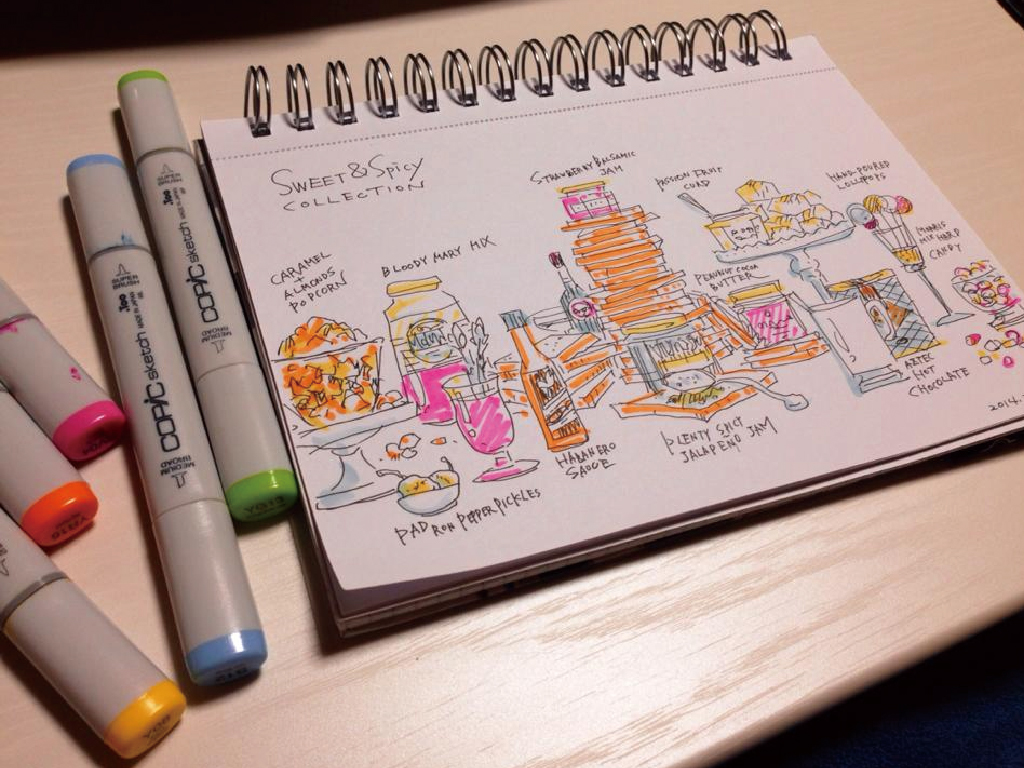 SWEET & SPICY
COLLECTION
CARAMEL
+
ALMONDS
POPCORN
BLOODY MARY MIX
STRAWBERRY BALSAMIC
JAM
PASSION FRUIT
CURD
HAND-POURED
LOLLIPOPS
HARD
CANDY
PEANUT COCOA
BUTTER
AZTEC
HOT
CHOCOLATE
HABANERO
SAUCE
PLENTY SPICY
JALAPENO JAM
PADRON PEPPER PICKLES
2014.
SUPER
BRUSH
COPIC sketch
MEDIUM
BROAD
SUPER
BRUSH
COPIC sketch
MEDIUM
BROAD